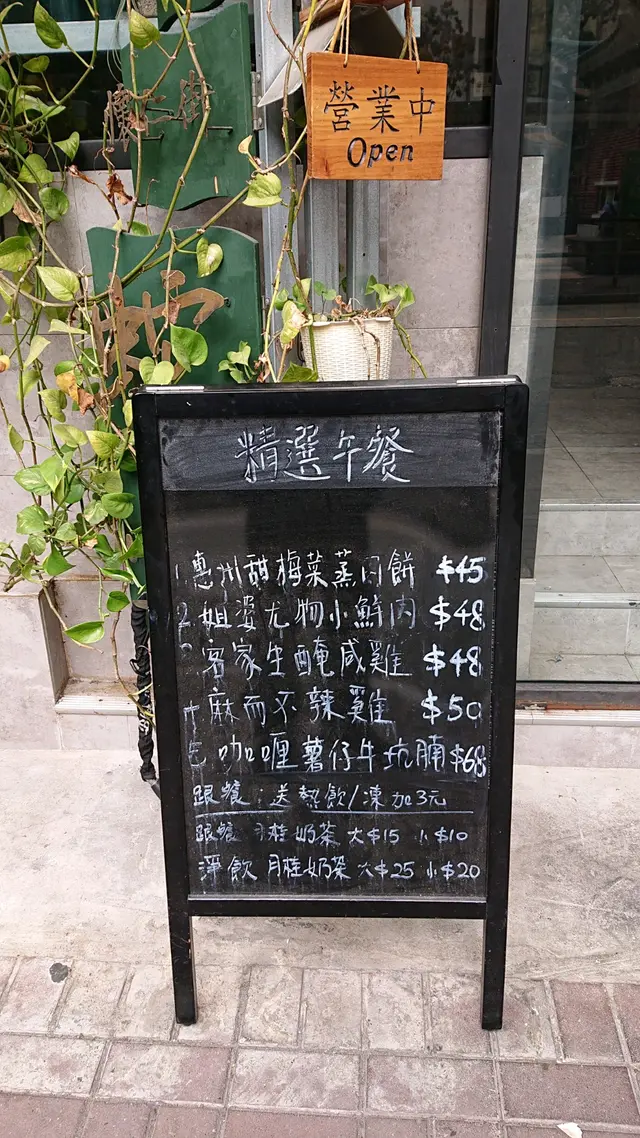 營業中
Open
精選午餐
1 惠州甜梅菜蒸肉餅 $45
2 姐婆尤物小鮮肉 $48
客家生醃咸雞 $48
麻而不辣雞 $50
咖喱薯仔牛坑腩 $68
跟餐:送熱飲/凍加3元
跟餐 月桂奶茶 大$15 小$10
淨飲 月桂奶茶 大$25 小$20